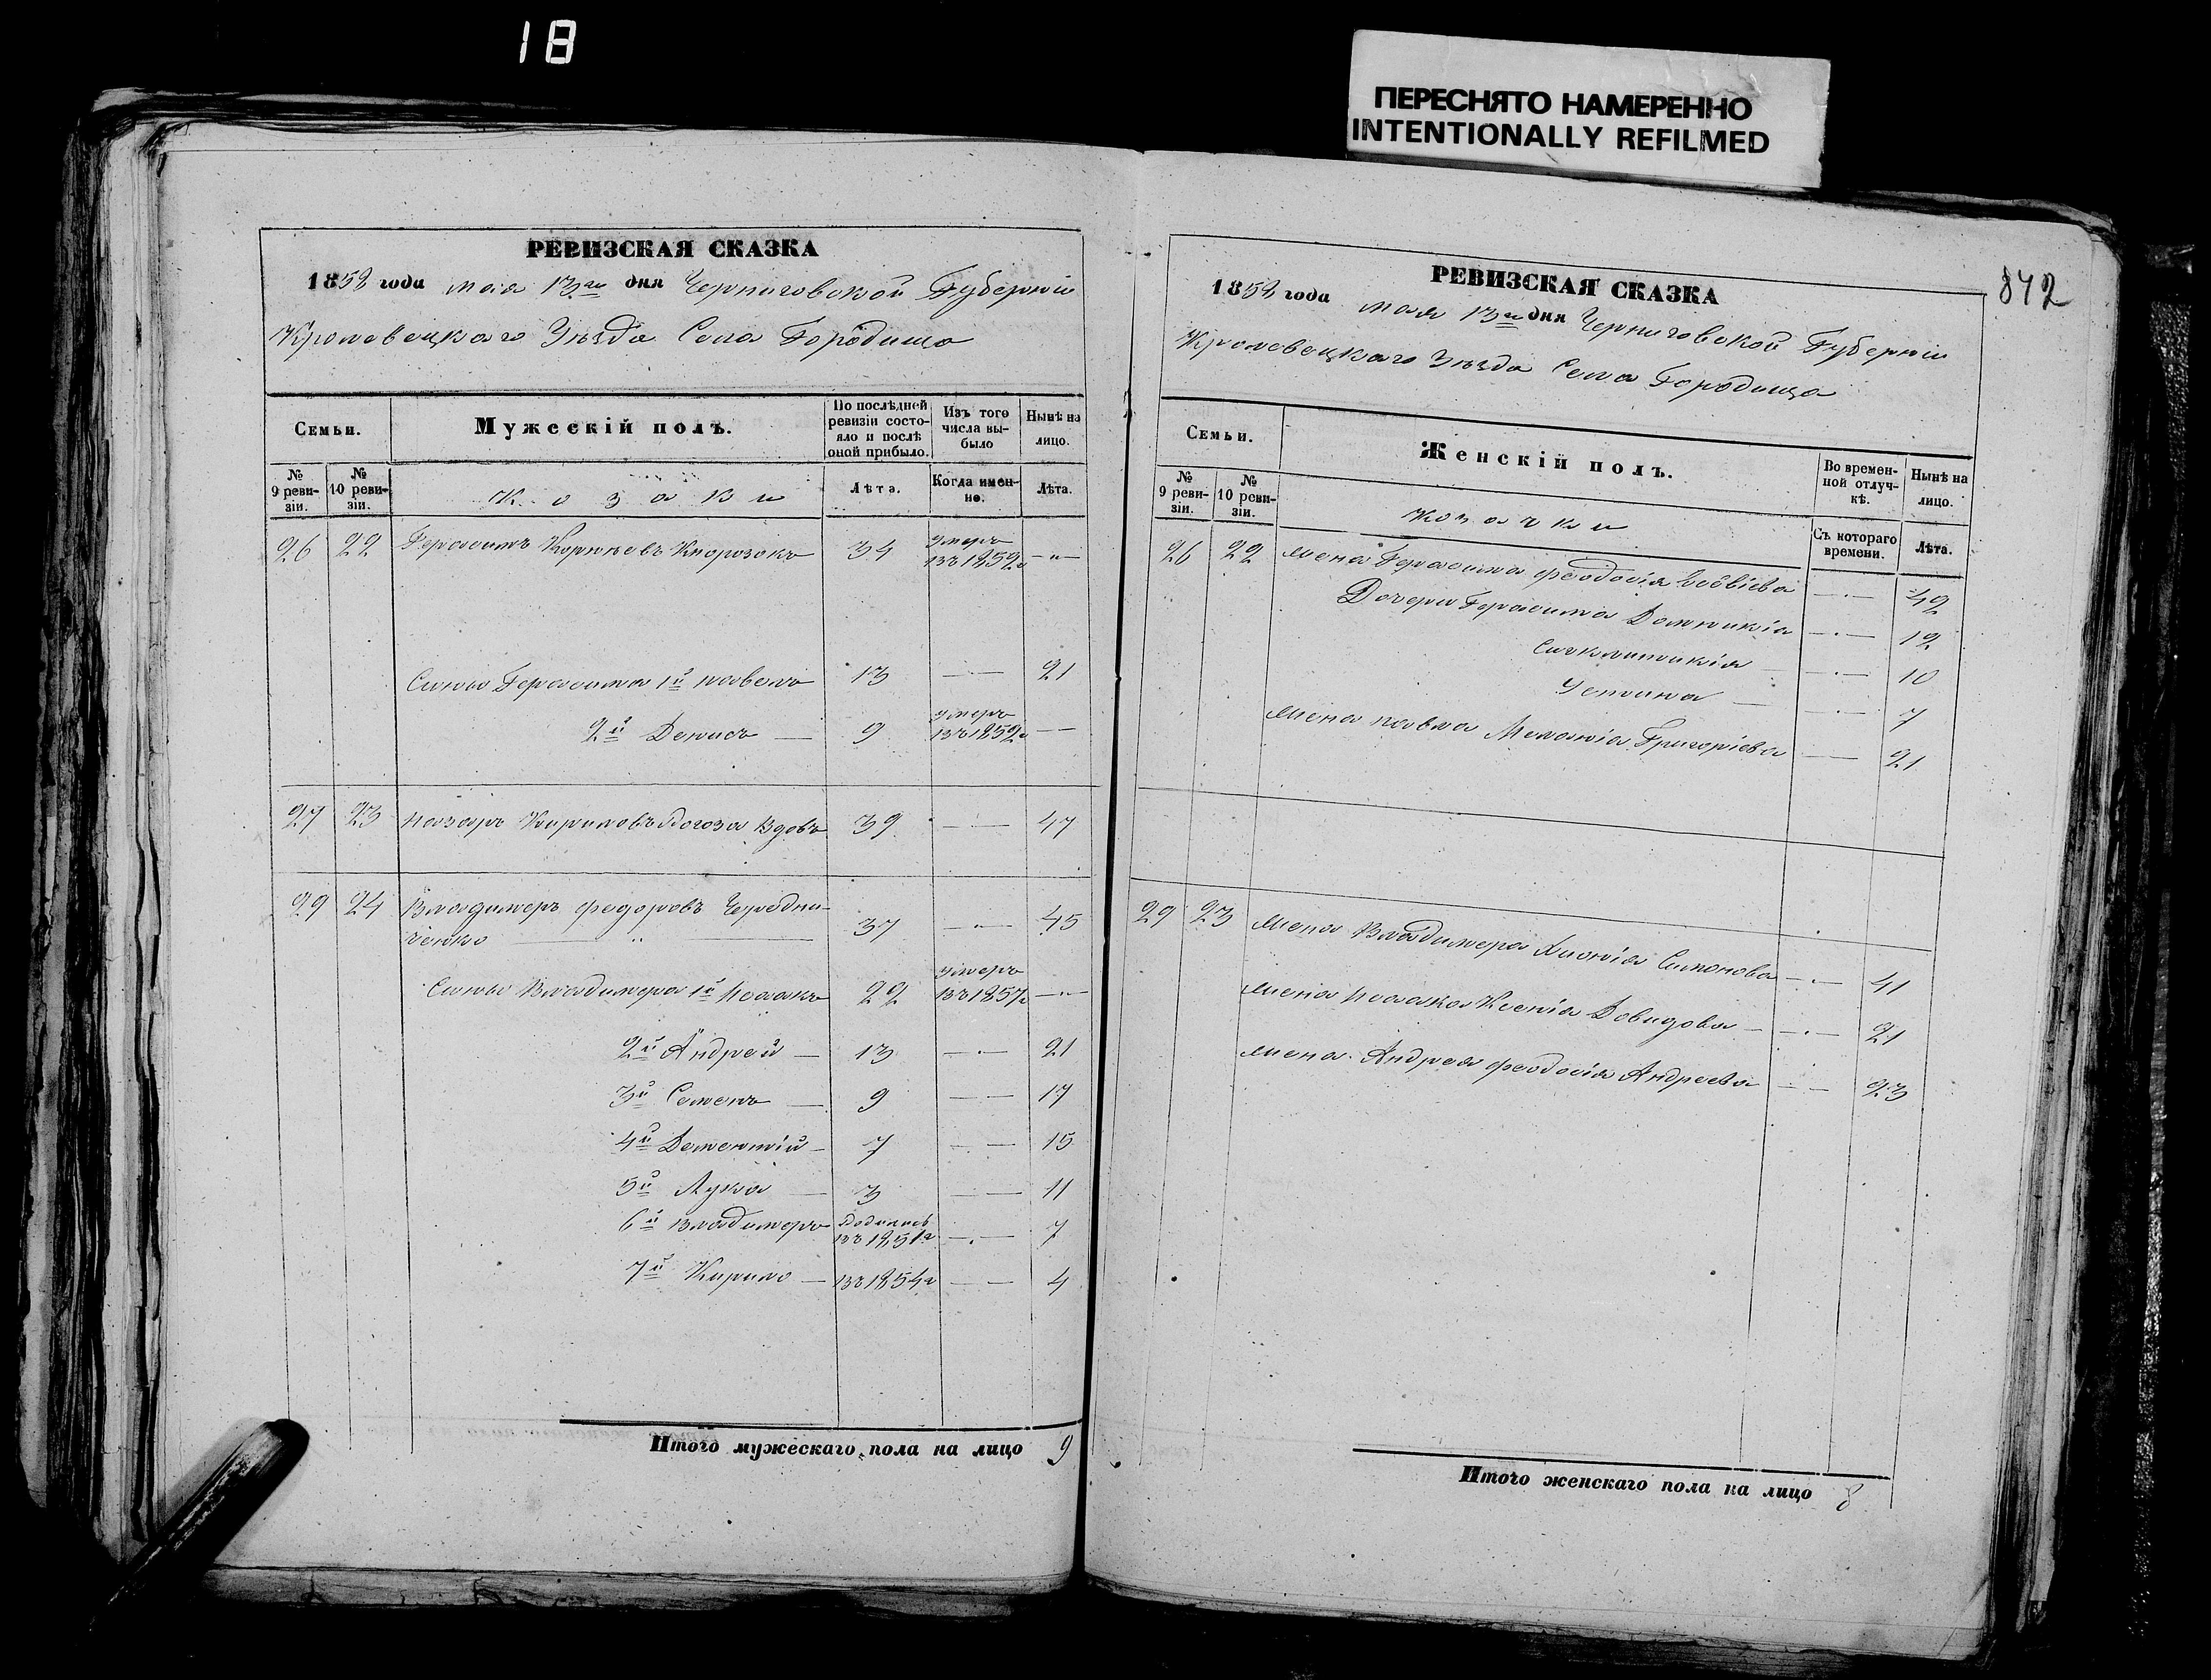 18
ПЕРЕСНЯТО НАМЕРЕННО
INTENTIONALLY REFILMED
РЕВИЗСКАЯ СКАЗКА
1858 года мая 13го дня Черниговской Губерніи
Кролевецкаго Уѣзда Села Городища
Семьи.
Мужескій полъ.
По послѣдней ревизіи состояло и послѣ оной прибыло.
Изъ того числа выбыло
Нынѣ на лицо.
№ 9 ревизіи.
№ 10 ревизіи.
Козаки
Лѣта.
Когда именно.
Лѣта.
26 22 Герасимъ Корнѣевъ 34 умеръ въ 1852г —"—
Сыны Герасима 1й Павелъ 13 — 21
2й Денисъ — 9 умеръ въ 1852г —
27 23 Назаръ Кириловъ Вдовъ 39 — 47
29 24 Владимеръ Федоровъ Чередни-
ченко — " — 37 — 45
Сыны Владимера 1й Исаакъ 22 умеръ въ 1857г —"—
2й Андрей — 13 — 21
3й Семенъ — 9 — 17
4й Дементій — 7 — 15
5й Лука — 3 — 11
6й Владимеръ родился въ 1851г — 7
7й Кирило — въ 1854г — 4
Итого мужескаго пола на лицо 9
842
РЕВИЗСКАЯ СКАЗКА
1858 года мая 13го дня Черниговской Губерніи
Кролевецкаго Уѣзда Села Городища
Семьи.
Женскій полъ.
Во временной отлучкѣ.
Нынѣ на лицо.
№ 9 ревизіи.
№ 10 ревизіи.
Козачки
Съ котораго времени.
Лѣта.
26 22 Жена Герасима Феодосія Саввіева — 42
Дочери Герасима Домникія — 12
Синклитикія — 10
Устина — 7
Жена Павла Меланія Григоріева — 21
29 23 Жена Владимера Симонова — 41
Жена Исаака Ксенія Давидова — 21
Жена Андрея Феодосія Андреева — 23
Итого женскаго пола на лицо 8